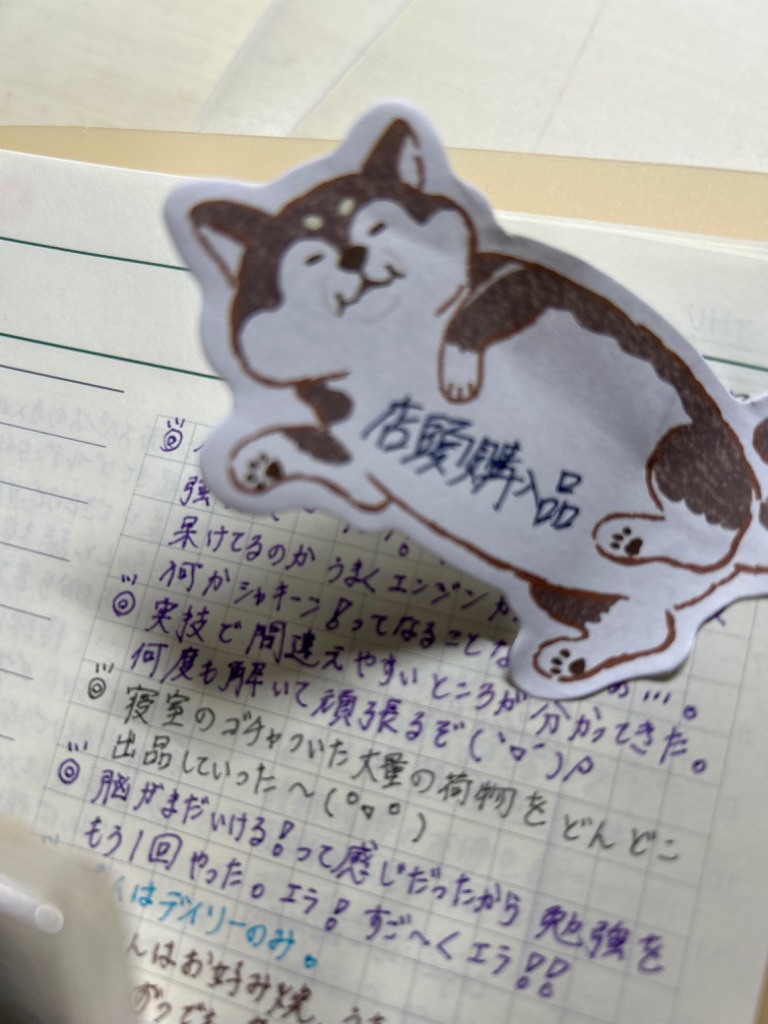 店頭購入品
強
果けてるのか うまくエンジンが
何かシャキーン!ってなることな
実技で間違えやすいところが分かってきた。
何度も解いて頑張るぞ(`▽´)ρ
寝室のゴチャついた大量の荷物をどんどこ
出品していった〜(°▽°)
脳がまだいける!って感じだったから 勉強を
もう1回やった。エラ!すご〜くエラ!!
はデイリーのみ。
んはお好み焼。